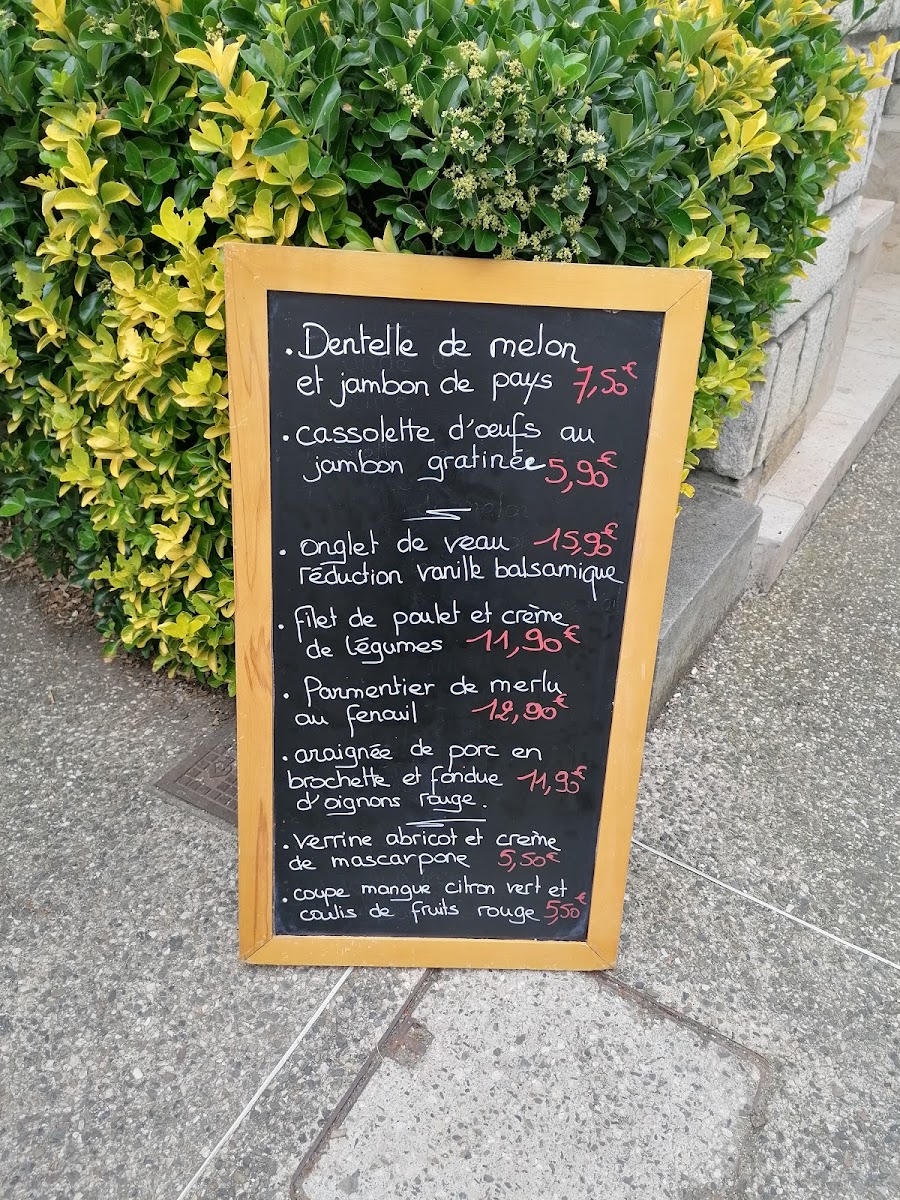 . Dentelle de melon
et jambon de pays 7,50€
. cassolette d'œufs au
jambon gratinée 5,90€
. onglet de veau 15,90€
réduction vanille balsamique
. filet de poulet et crème
de légumes 11,90€
. Parmentier de merlu
au fenouil 12,90€
. araignée de porc en
brochette et fondue 11,90€
d'oignons rouge.
. verrine abricot et creme
de mascarpone 5,50€
. coupe mangue citron vert et
coulis de fruits rouge 5,50€